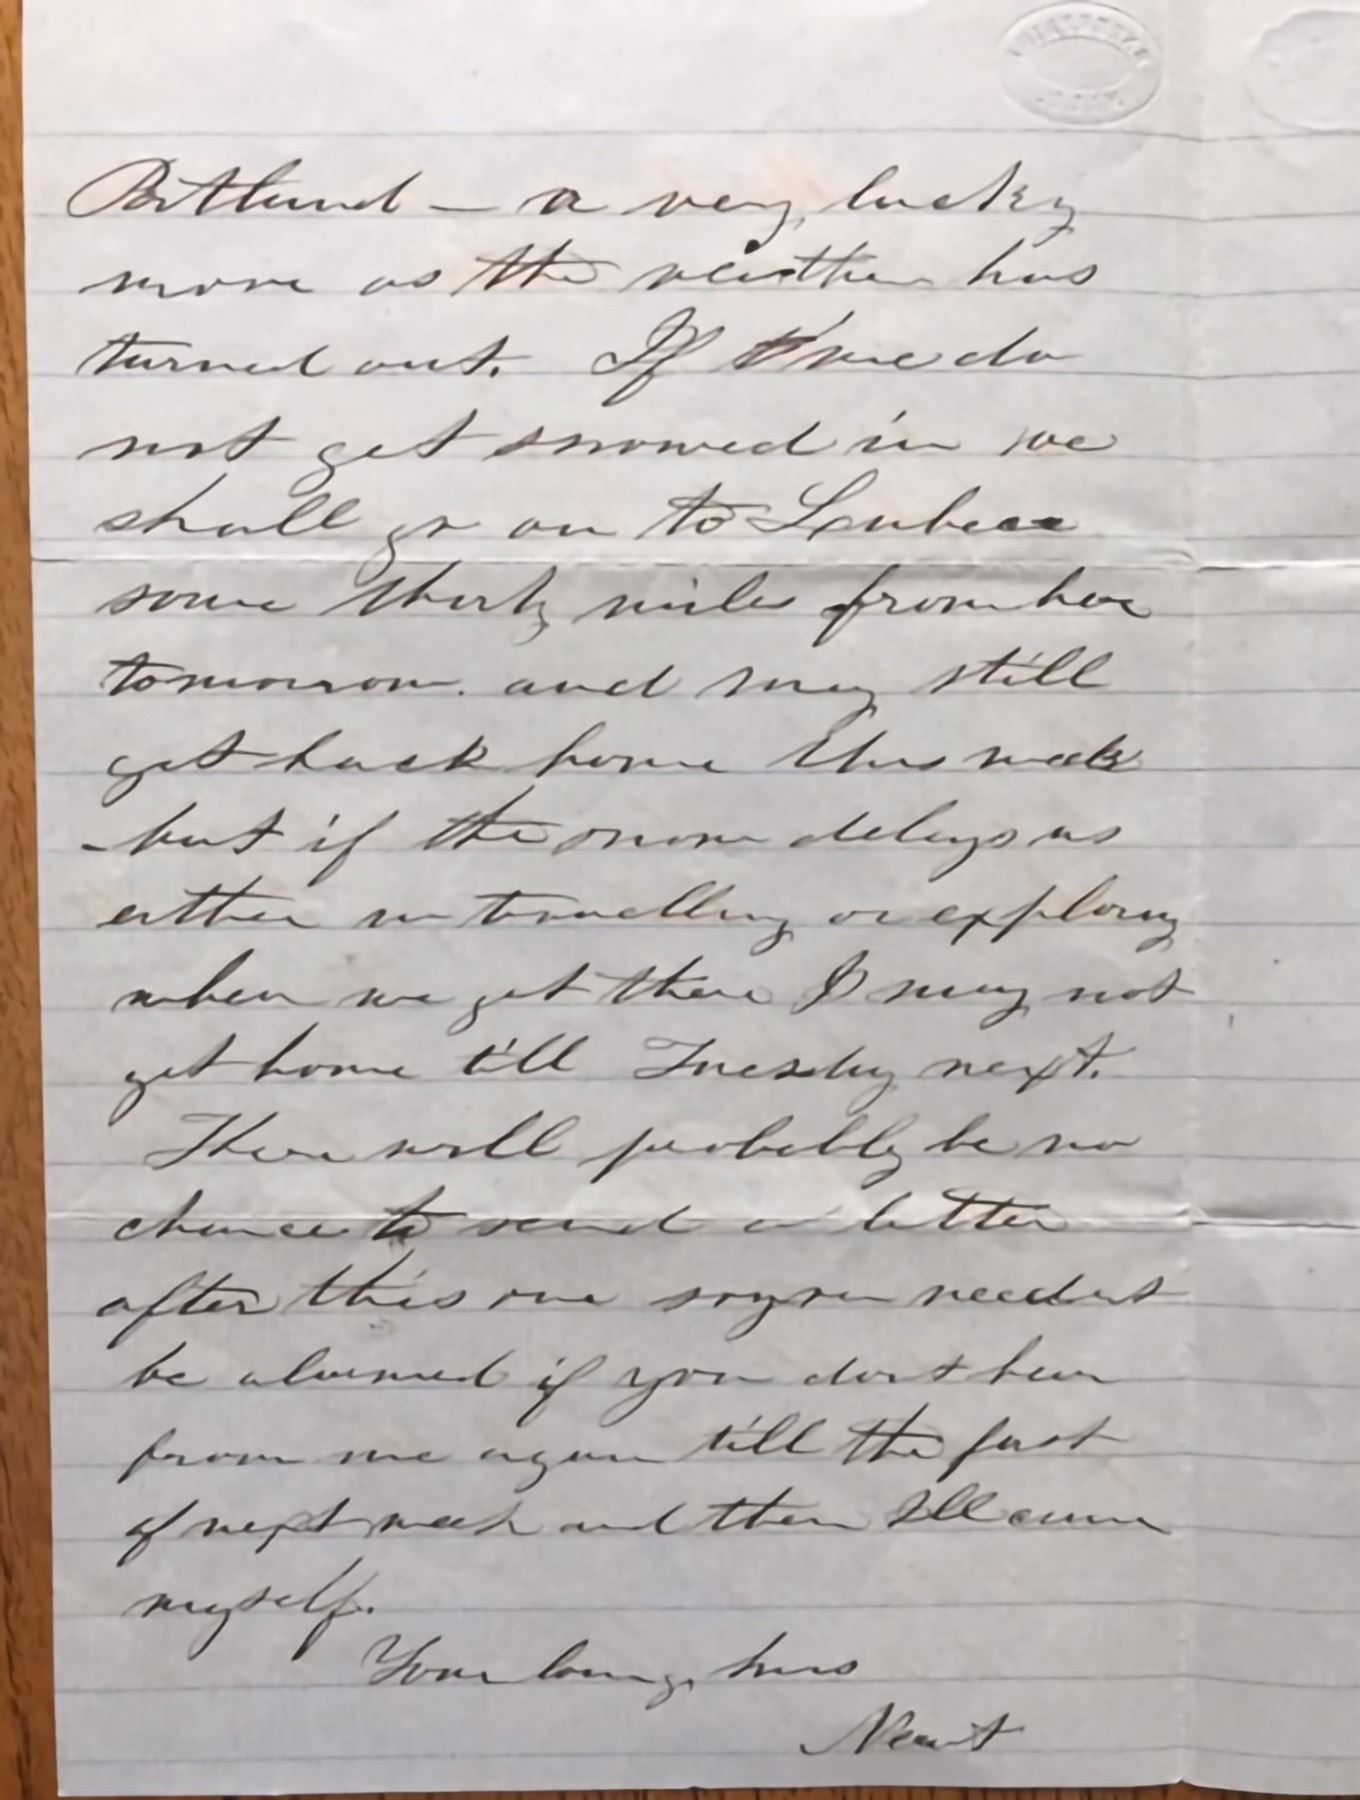 Portland — a very lucky
move as the weather has
turned out. If we do
not get snowed in we
shall go on to Lubec
some thirty miles from here
tomorrow. and may still
get back home this week
- but if the snow delays us
either in travelling or exploring
when we get there I may not
get home till Tuesday next.
There will probably be no
chance to send a letter
after this one so you neednt
be alarmed if you dont hear
from me again till the first
of next week and then Ill come
myself.
Your loving hus
Newt